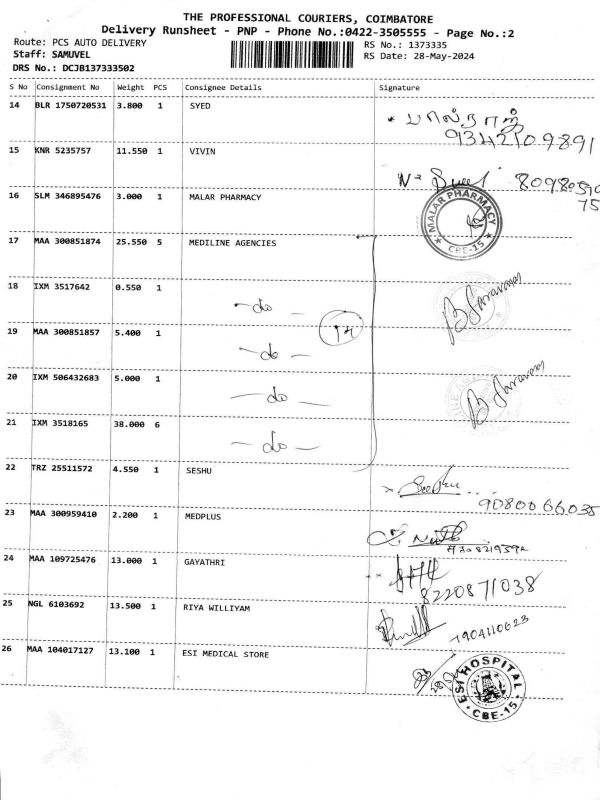 THE PROFESSIONAL COURIERS, COIMBATORE
Delivery Runsheet - PNP - Phone No.:0422-3505555 - Page No.:2
Route: PCS AUTO DELIVERY RS No.: 1373335
Staff: SAMUVEL RS Date: 28-May-2024
DRS No.: DCJB137333502
S No Consignment No Weight PCS Consignee Details Signature
14 BLR 1750720531 3.800 1 SYED
பால்ராஜ்
9342109891
15 KNR 5235757 11.550 1 VIVIN
16 SLM 346895476 3.000 1 MALAR PHARMACY
MALAR PHARMACY
CBE-15
17 MAA 300851874 25.550 5 MEDILINE AGENCIES
18 IXM 3517642 0.550 1
- do -
14
B Saravanan
19 MAA 300851857 5.400 1
- do -
20 IXM 506432683 5.000 1
- do -
B Saravanan
21 IXM 3518165 38.000 6
- do -
22 TRZ 25511572 4.550 1 SESHU
Seshu
9080066035
23 MAA 300959410 2.200 1 MEDPLUS
24 MAA 109725476 13.000 1 GAYATHRI
8220871038
25 NGL 6103692 13.500 1 RIYA WILLIYAM
7904110623
26 MAA 104017127 13.100 1 ESI MEDICAL STORE
ESI HOSPITAL
CBE-15